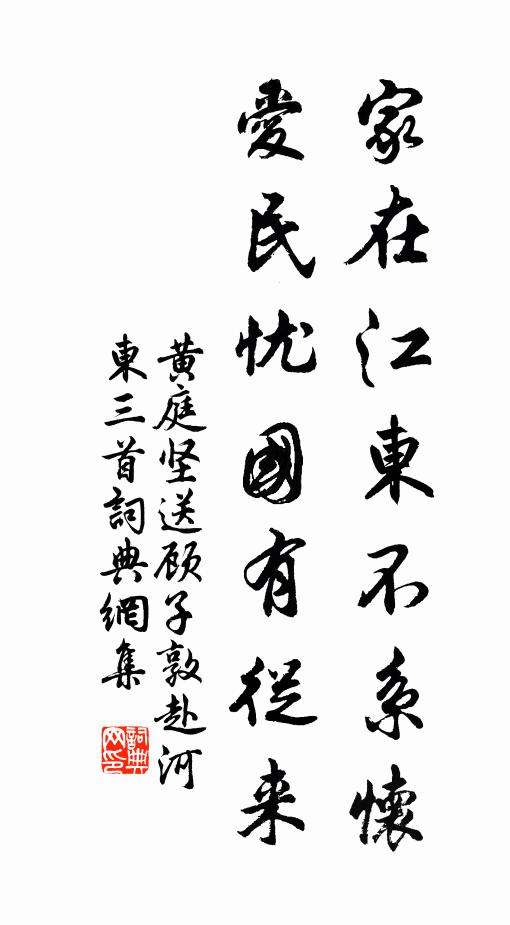 家在江東不系懷
愛民忧國有從来
黄庭坚送顾子敦赴河
東三首詞典網集
詞典
网印